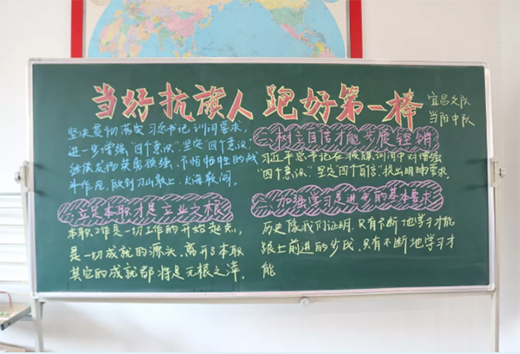 当好抗旗人 跑好第一棒
宜昌支队
当阳中队
坚决贯彻落实习总书记训词要求,
进一步增强"四个意识"坚定"四个意识"
继续发扬英勇顽强、不怕牺牲的战
斗作风,做到刀山敢上,火海敢闯。
立足本职才是立业之根
本职工作是一切工作的开始起点,
是一切成就的源头,离开了本职
其它的成就都将是无根之萍。
自信才能步履铿锵
习近平总书记在授旗训词中对增强
"四个意识"、"坚定四个自信"提出明确要求。
加强学习是进步的基本要求
历史像我们证明,只有不断地学习才能
跟上前进的步伐,只有不断地学习才
能